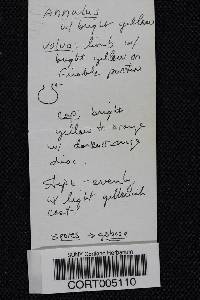 Annulus
w/ bright yellow
volva: limb w/
bright yellow on
friable portion
cap, bright
yellow to orange
w/ darker orange
disc.
Stipe - evenly
w/ light yellowish
cast
spores → globose
SUNY Cortland Herbarium
CORT005110